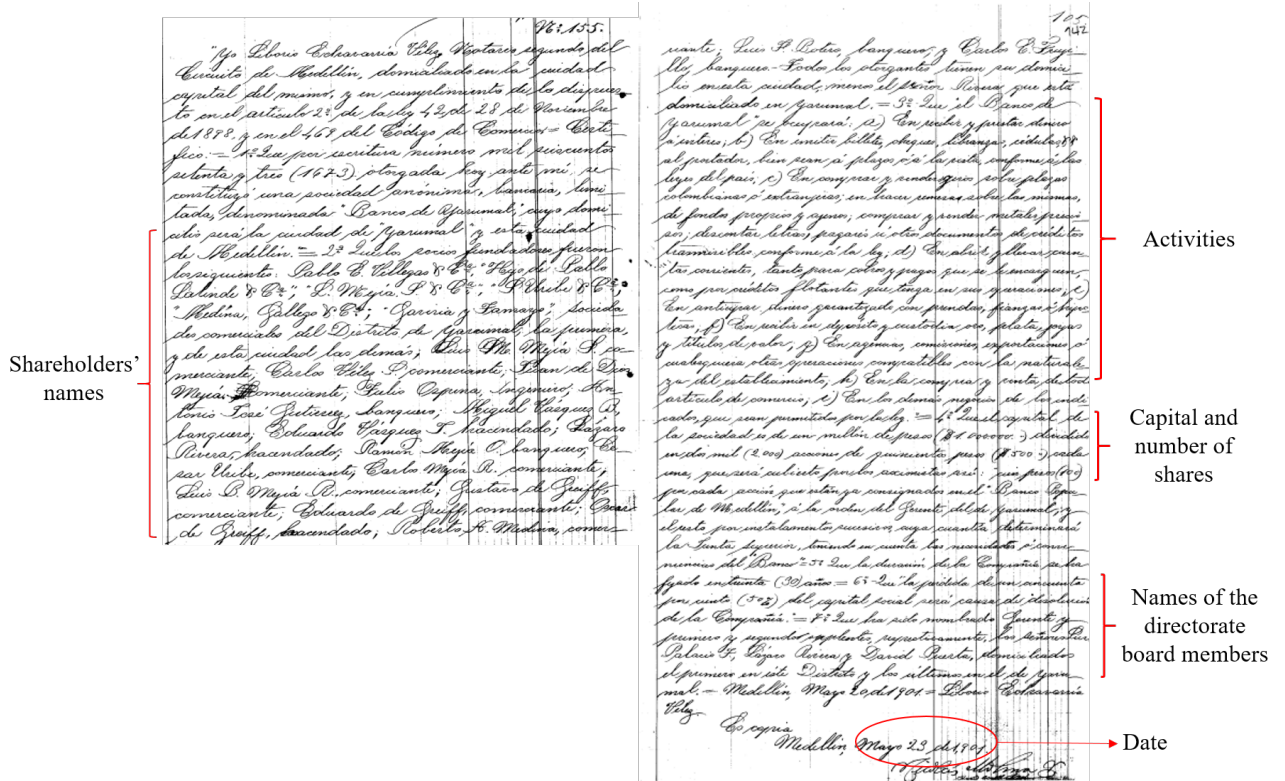 Nº 155.
"Yo Liborio Echavarría Vélez Notario segundo del
Circuito de Medellín, domiciliado en la ciudad
capital del mismo, y en cumplimiento de lo dispues-
to en el artículo 2º de la ley 42, de 28 de Noviembre
de 1898, y en el 469 del Código de Comercio = Certi-
fico: = 1º Que por escritura número mil seiscientos
setenta y tres (1673) otorgada hoy ante mí, se
constituyó una sociedad anónima, bancaria, limi-
tada, denominada "Banco de Yarumal," cuyo domi-
cilio será la ciudad de Yarumal y esta ciudad
de Medellín. = 2º Que los socios fundadores fueron
los siguientes: Pablo E. Villegas & Cª, "Hijo de Pablo
Lalinde & Cª", "L. Mejía S. & Cª", "S. Uribe & Cª,
"Medina, Gallego & Cª; "Gaviria y Tamayo," socieda
des comerciales del Distrito de Yarumal, la primera,
y de esta ciudad las demás; Luis M. Mejía S. co-
merciante; Carlos Vélez S. comerciante; Juan de Dios
Mejía, comerciante; Julio Ospina, ingeniero, An-
tonio José Gutiérrez, banquero; Miguel Vásquez B,
banquero; Eduardo Vásquez J. hacendado; Lázaro
Rivera, hacendado; Ramón Mejía O. banquero, Ce-
sar Uribe, comerciante, Carlos Mejía R. comerciante;
Luis B. Mejía R. comerciante; Gustavo de Greiff,
comerciante; Eduardo de Greiff, comerciante; Oscar
de Greiff, hacendado; Roberto A. Medina, comer-
Shareholders'
names
105
942
ciante; Luis F. Botero, banquero, y Carlos E. Truji-
llo, banquero. - Todos los otorgantes tienen su domici-
lio en esta ciudad, menos el señor Rivera que está
domiciliado en Yarumal. = 3º Que el Banco de
Yarumal "se ocupará: a) En recibir y prestar dinero
á interes; b) En emitir billetes, cheques, libranzas, cédulas &&
al portador, bien sean á plazos ó á la vista conforme á las
leyes del pais, c) En comprar y vender giros sobre plazas
colombianas ó extranjeras; en hacer remesas sobre las mismas,
de fondos propios y agenos; comprar y vender metales precio-
sos; descontar letras, pagarés ú otros documentos de créditos
transmisibles conforme á la ley, d) En abrir y llevar cuen-
tas corrientes, tanto para cobros y pagos que se le encarguen,
como por créditos flotantes que tenga en sus operaciones, e)
En anticipar dinero garantizado con prendas, fianzas é hipo-
tecas, f) En recibir en depósito y custodia oro, plata, joyas
y títulos de valor, g) En agencias, comisiones, exportaciones ó
cualesquiera otras operaciones compatibles con la naturale-
za del establecimiento, h) En la compra y venta de todo
artículo de comercio; i) En los demás negocios de los indi
cados, que sean permitidos por la ley. = 4º Que el capital de
la sociedad es de un millón de pesos ($1.000000.-) dividido
en dos mil (2.000) acciones de quinientos pesos ($500.-) cada
una, que será cubierto por los accionistas así: pesos (100)
por cada acción que están ya consignados en el "Banco Popu-
lar de Medellín," á la orden del Gerente del de Yarumal; y
el resto por instalamentos sucesivos, cuya cuantía determinará
la Junta superior, teniendo en cuenta las necesidades ó conve-
niencias del "Banco" = 5º Que la duración de la Compañía se ha
fijado en treinta (30) años = 6º Que "la pérdida de un cincuenta
por ciento (50%) del capital social será causa de disolución
de la Compañía." = 7º Que ha sido nombrado Gerente y
primero y segundo suplentes, respectivamente, los señores Luis
Palacio F, Lázaro Rivera y David Puerta, domiciliados
el primero en este Distrito y los últimos en el de Yaru-
mal. = Medellín, Mayo 20, de 1901. = Liborio Echavarría
Vélez
Es copia
Medellín, Mayo 23 de 1901.
Activities
Capital and
number of
shares
Names of the
directorate
board members
Date